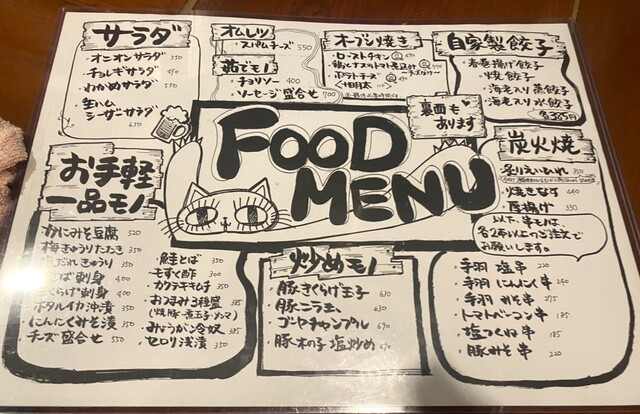 サラダ
・オニオンサラダ 350
・チョレギサラダ 490
・わかめサラダ 550
・生ハム
シーザーサラダ
650
オムレツ
・スパムチーズ 550
茹でモノ
・チョリソー 400
・ソーセージ盛合せ 700
オーブン焼き
・ローストチキン
・ポテトチーズ
自家製餃子
・春巻揚げ餃子
・焼餃子
・海老入り蒸餃子
・海老入り水餃子
各385円
裏面も
あります
FOOD
MENU
炭火焼
・炙りえいひれ 350
・焼きなす 440
・厚揚げ 330
以下、串モノは、
各2本以上のご注文で
お願いします。
・手羽 塩串 220
・手羽 にんにく串 290
・手羽 みそ串 275
・トマトベーコン串 185
・塩つくね串 185
・豚みそ串 220
お手軽
一品モノ
・かにみそ豆腐 520
・梅きゅうりたたき 350
だれきゅうり 350
刺身 400
らげ刺身 400
・ホタルイカ沖漬 350
・にんにくみそ漬 350
・チーズ盛合せ 550
・鮭とば 350
・もずく酢 300
・カクテキキムチ 350
・おつまみ3種盛 385
(焼豚・煮玉子・メンマ)
・みょうがン冷奴 385
・セロリ浅漬 350
炒めモノ
・豚きくらげ玉子 630
・豚ニラ玉 630
・ゴーヤチャンプル 690
・豚木の子塩炒め 690